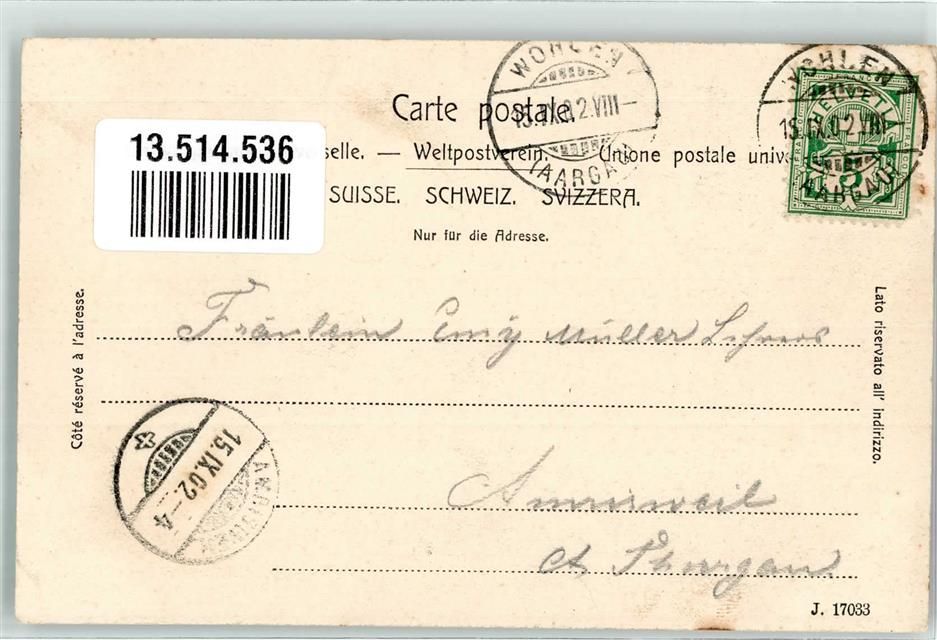 WOHLEN
15.IX.02.VIII–
(AARGAU)
WOHLEN
15.IX.02.VIII
(AARGAU)
HELVETIA
FRANCO
5
Carte postale.
13.514.536
selle. — Weltpostverein. — Unione postale univ
SUISSE. SCHWEIZ. SVIZZERA.
Nur für die Adresse.
Côté réservé à l'adresse.
Lato riservato all' indirizzo.
Fräulein Emÿ Müller
Amrisweil
Ct. Thurgau
15.IX.02.–4
AMRISWEIL
J. 17033